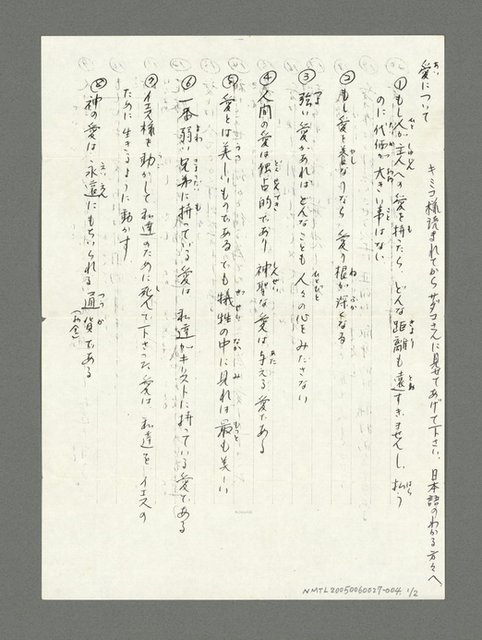 愛について
キミコ様読まれてから サダコさんに見せてあげて下さい、日本語のわかる方々へ
①もし人が主人への愛を持ったら、どんな距離も遠すぎませんし、払う
のに代価が大きい事はない
②もし愛を養なうなら 愛の根が深くなる
③強い愛があればどんなことも人々の心をみたさない
④人間の愛は独占的であり 神聖な愛は与える愛である
⑤愛とは美しいものである でも犠牲の中に見れば最も美しい
⑥一番弱い兄弟に持っている愛は 私達がキリストに持っている愛である
⑦イエス様を動かして私達のために死んで下さった愛は 私達を イエスの
ために生きるように動かす
⑧神の愛は永遠にもちいられる通貨である
(お金)
NMTL20050060027-004 1/2